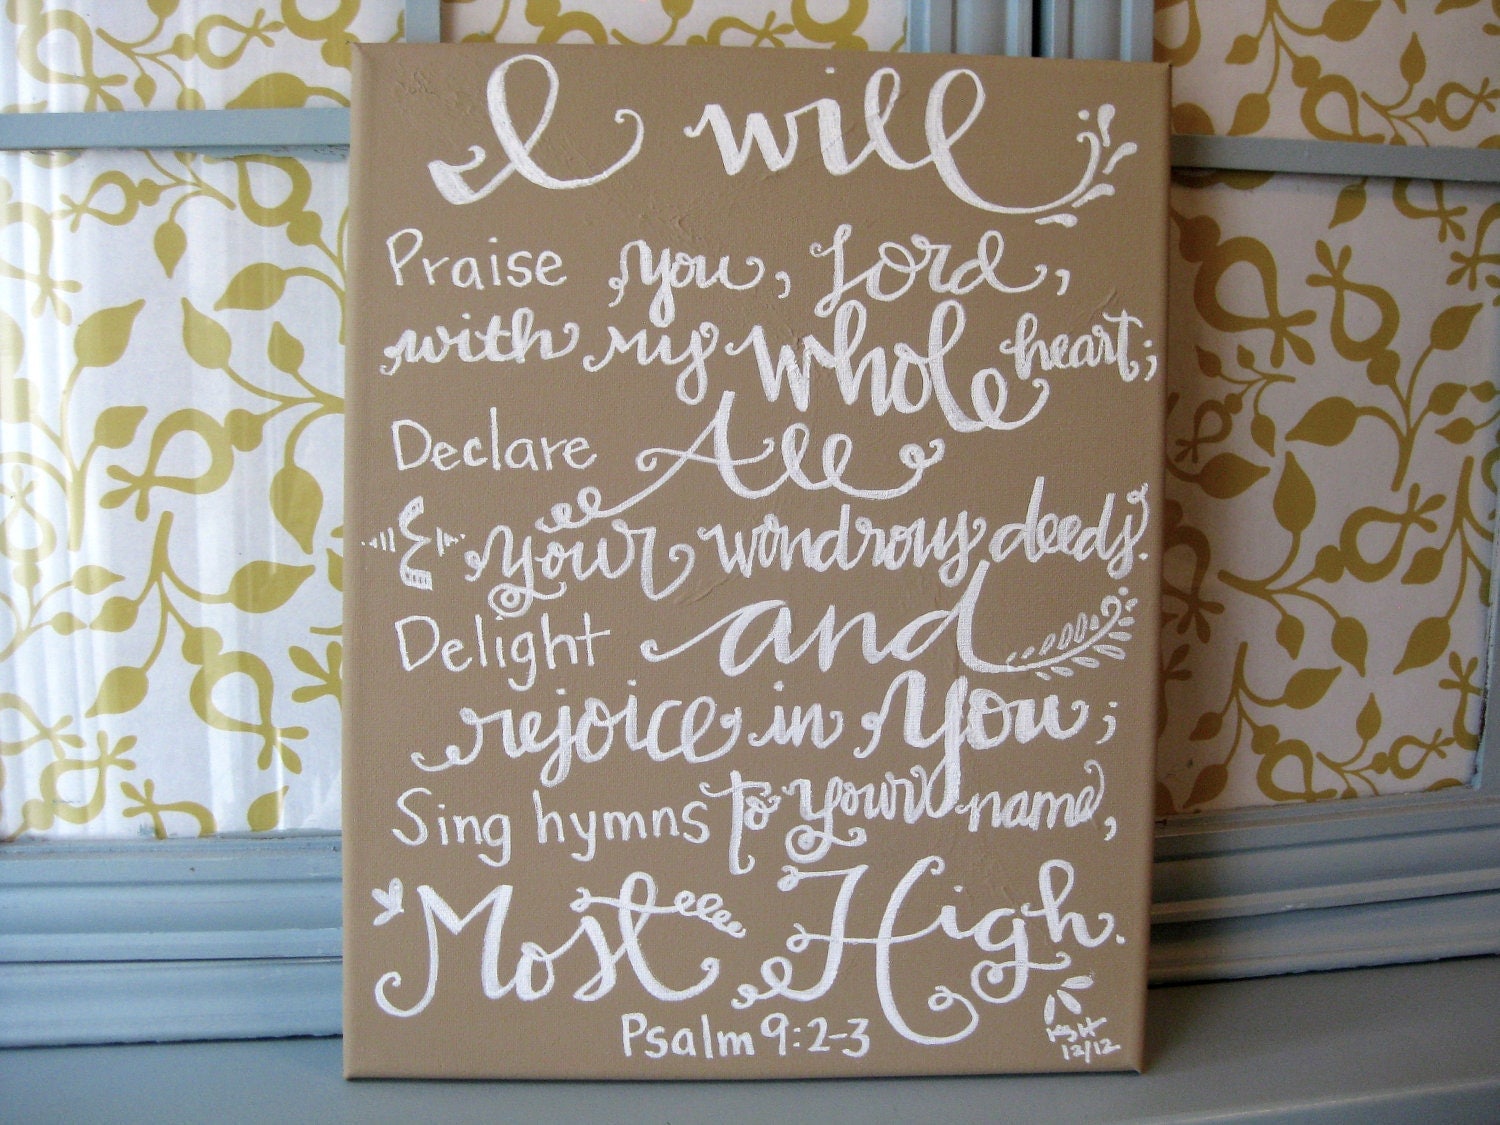 I will
Praise you, Lord,
with my whole heart;
Declare All
your wondrous deeds.
Delight and
rejoice in You;
Sing hymns to your name,
Most High.
Psalm 9:2-3
12/12